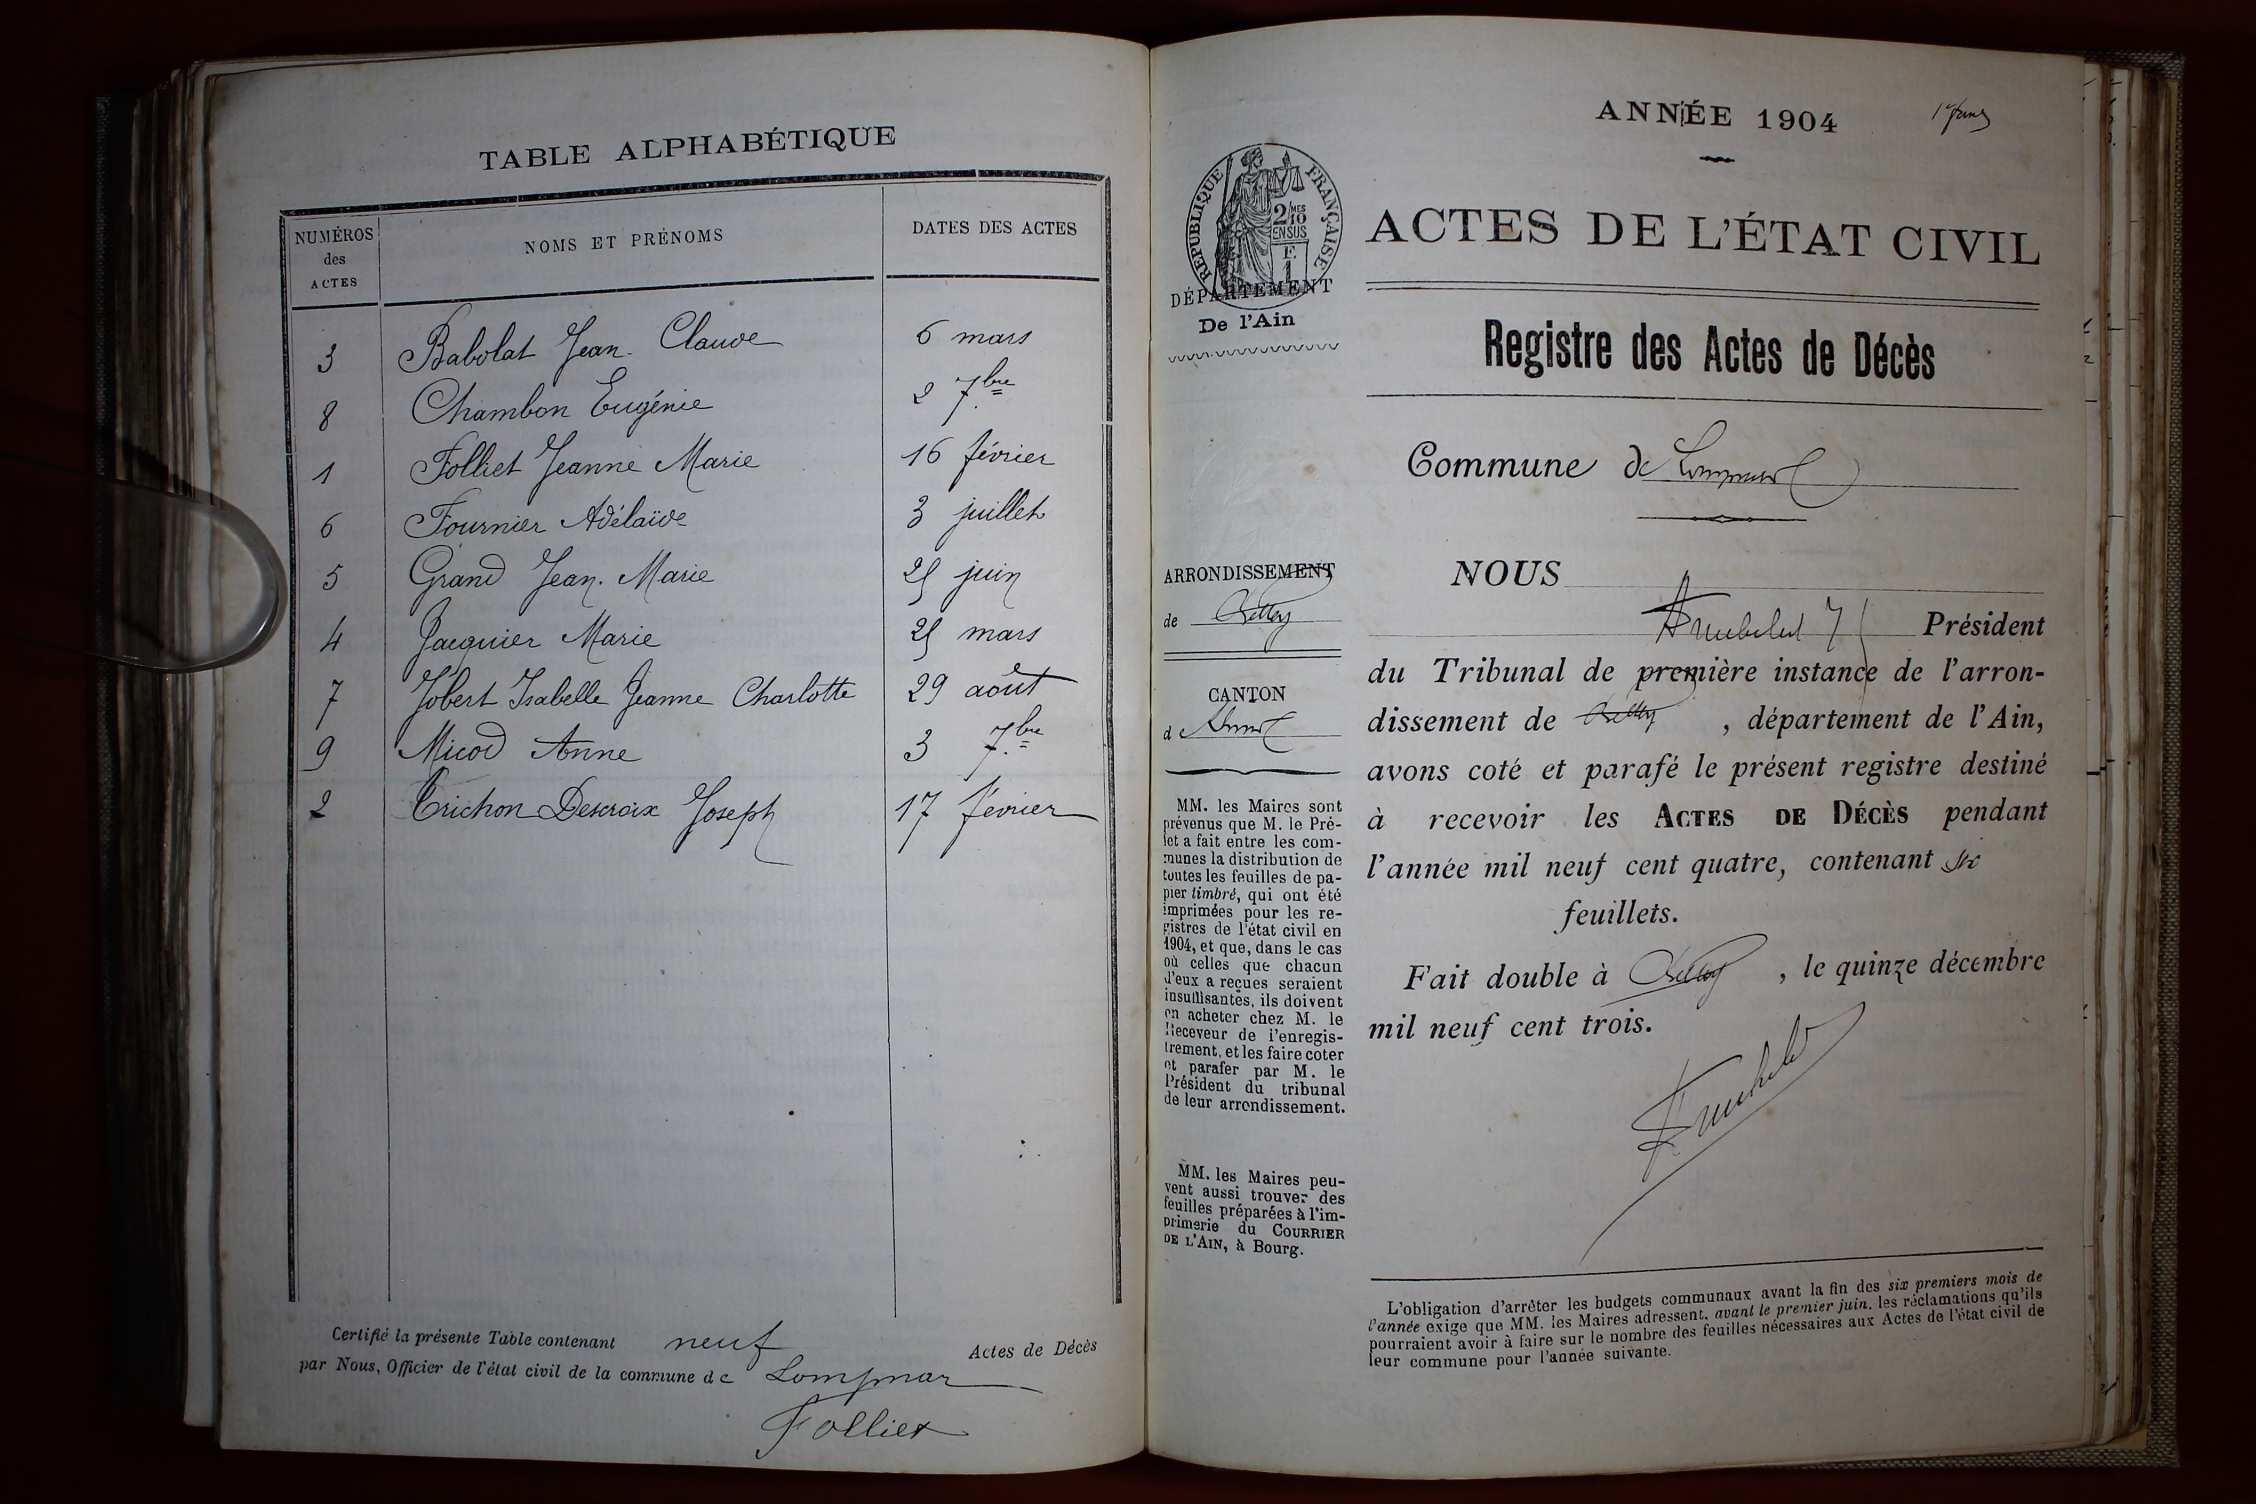 TABLE ALPHABÉTIQUE
NUMÉROS
des
ACTES
NOMS ET PRÉNOMS
DATES DES ACTES
3 Babolat Jean Claude 6 mars
8 Chambon Eugénie 2 7.bre
1 Folliet Jeanne Marie 16 février
6 Fournier Adélaïde 3 juillet
5 Grand Jean Marie 25 juin
4 Jacquier Marie 25 mars
7 Jobert Isabelle Jeanne Charlotte 29 août
9 Micod Anne 3 7.bre
2 Trichon Descroix Joseph 17 février
Certifié la présente Table contenant neuf Actes de Décès
par Nous, Officier de l'état civil de la commune de Lompnas
Folliet
ANNÉE 1904
RÉPUBLIQUE FRANÇAISE
2/10MES
EN SUS
F.
1
DÉPARTEMENT
De l'Ain
ARRONDISSEMENT
de Belley
CANTON
d
MM. les Maires sont
prévenus que M. le Pré-
fet a fait entre les com-
munes la distribution de
toutes les feuilles de pa-
pier timbré, qui ont été
imprimées pour les re-
gistres de l'état civil en
1904, et que, dans le cas
où celles que chacun
d'eux a reçues seraient
insuffisantes, ils doivent
en acheter chez M. le
Receveur de l'enregis-
trement, et les faire coter
et parafer par M. le
Président du tribunal
de leur arrondissement.
MM. les Maires peu-
vent aussi trouver des
feuilles préparées à l'im-
primerie du COURRIER
DE L'AIN, à Bourg.
ACTES DE L'ÉTAT CIVIL
Registre des Actes de Décès
Commune de Lompnas
NOUS
Président
du Tribunal de première instance de l'arron-
dissement de Belley, département de l'Ain,
avons coté et parafé le présent registre destiné
à recevoir les ACTES DE DÉCÈS pendant
l'année mil neuf cent quatre, contenant six
feuillets.
Fait double à Belley, le quinze décembre
mil neuf cent trois.
L'obligation d'arrêter les budgets communaux avant la fin des six premiers mois de
l'année exige que MM. les Maires adressent, avant le premier juin, les réclamations qu'ils
pourraient avoir à faire sur le nombre des feuilles nécessaires aux Actes de l'état civil de
leur commune pour l'année suivante.